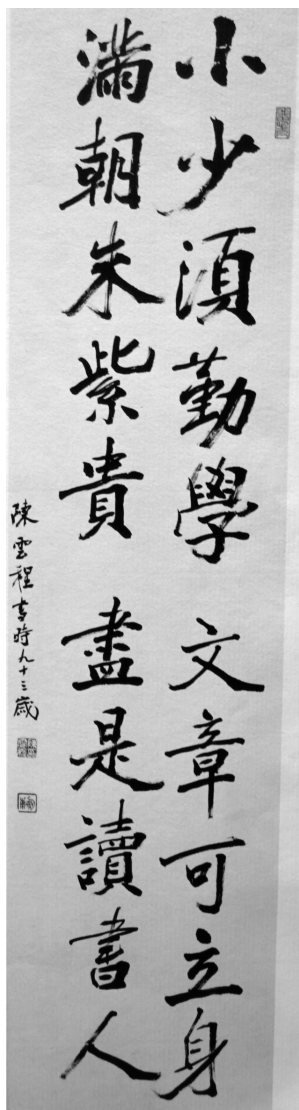 小少須勤學 文章可立身
滿朝朱紫貴 盡是讀書人
陳雲程書時九十三歲